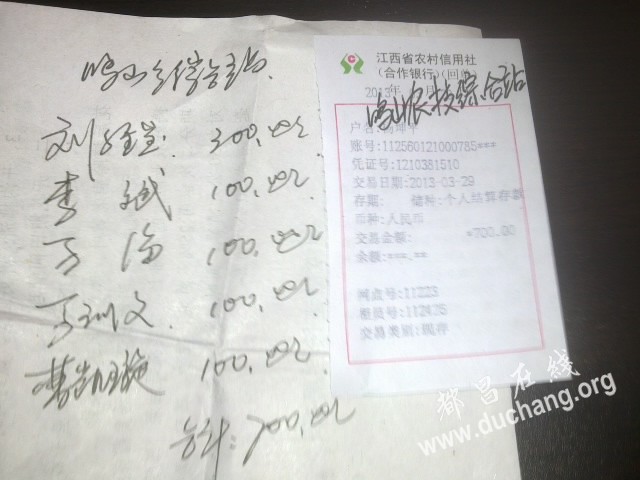 刘经莹. 300.00元
李斌 100.00元
100.00元
100.00元
100.00元
合计: 700.00元
江西省农村信用社
(合作银行)(回单)
2013年 月
鸣山农技综合站
户名:
账号:112560121000785***
凭证号:1210381510
交易日期:2013-03-29
存期: 储种:个人结算存款
币种:人民币
交易金额: *700.00
余额:***.**
网点号:11223
柜员号:112425
交易类别:现存
都昌在线
www.duchang.org